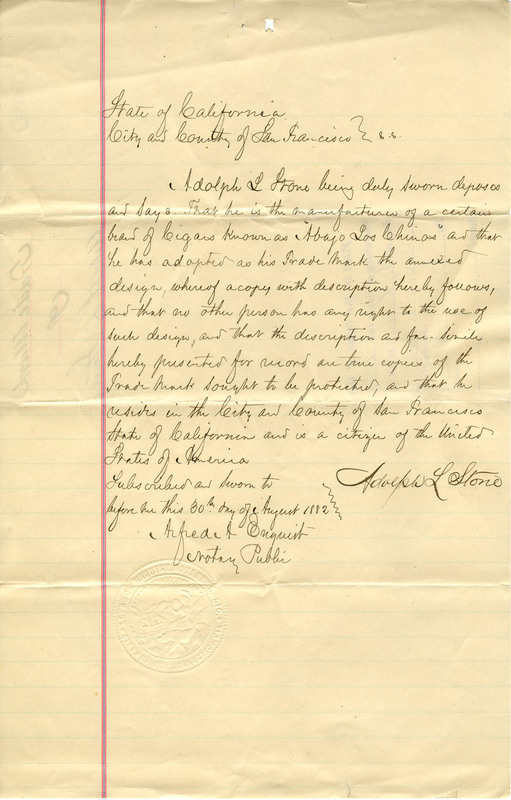 State of California
City and County of San Francisco } s.s.
Adolph L Stone being duly sworn deposes
and says. That he is the manufacturer of a certain
brand of Cigars known as "Abajo Los Chinos" and that
he has adopted as his Trade Mark the annexed
design, whereof a copy with description hereby follows,
and that no other person has any right to the use of
such design, and that the description and fac-simile
hereby presented for record are true copies of the
Trade Mark sought to be protected, and that he
resides in the City and County of San Francisco
State of California and is a citizen of the United
States of America
Subscribed and sworn to
Adolph L Stone
before me this 30th day of August 1882
Alfred A Enquist
Notary Public